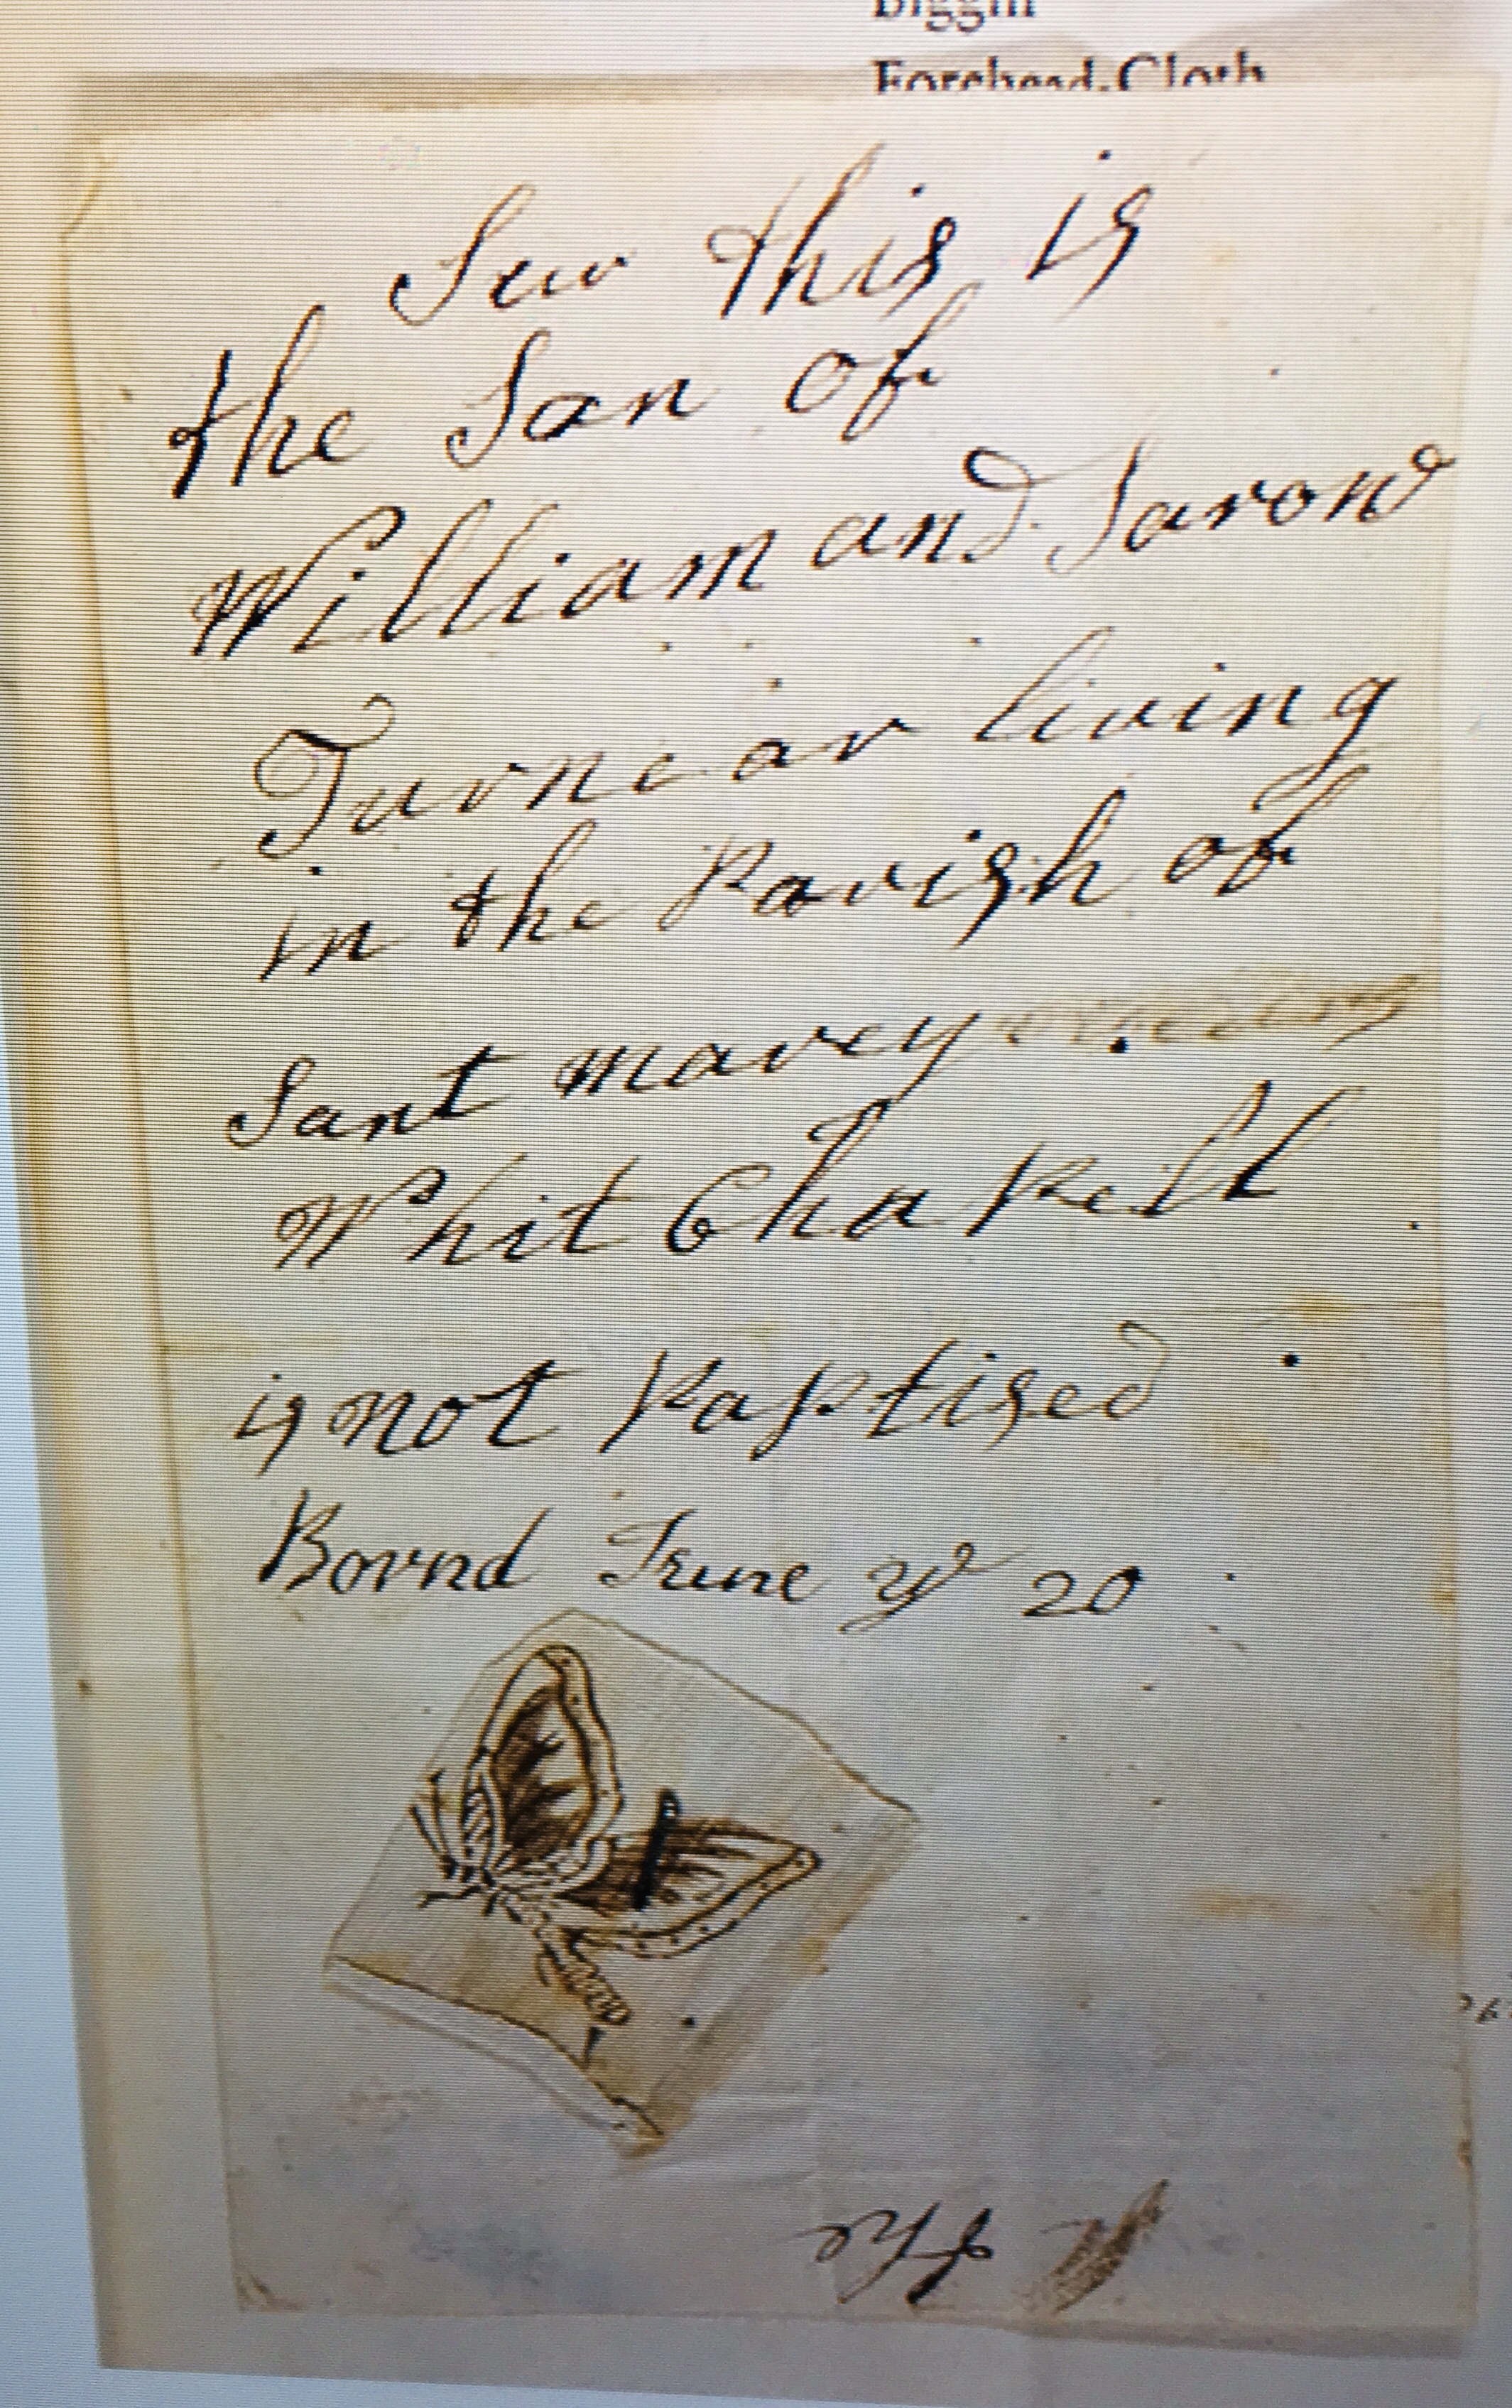 Biggin
Forehead-Cloth
Sur this is
the Son of
William and Sarow
Turnear living
in the parish of
Sant marey
Whit Chapell
is not paptised
Bornd June ye 20